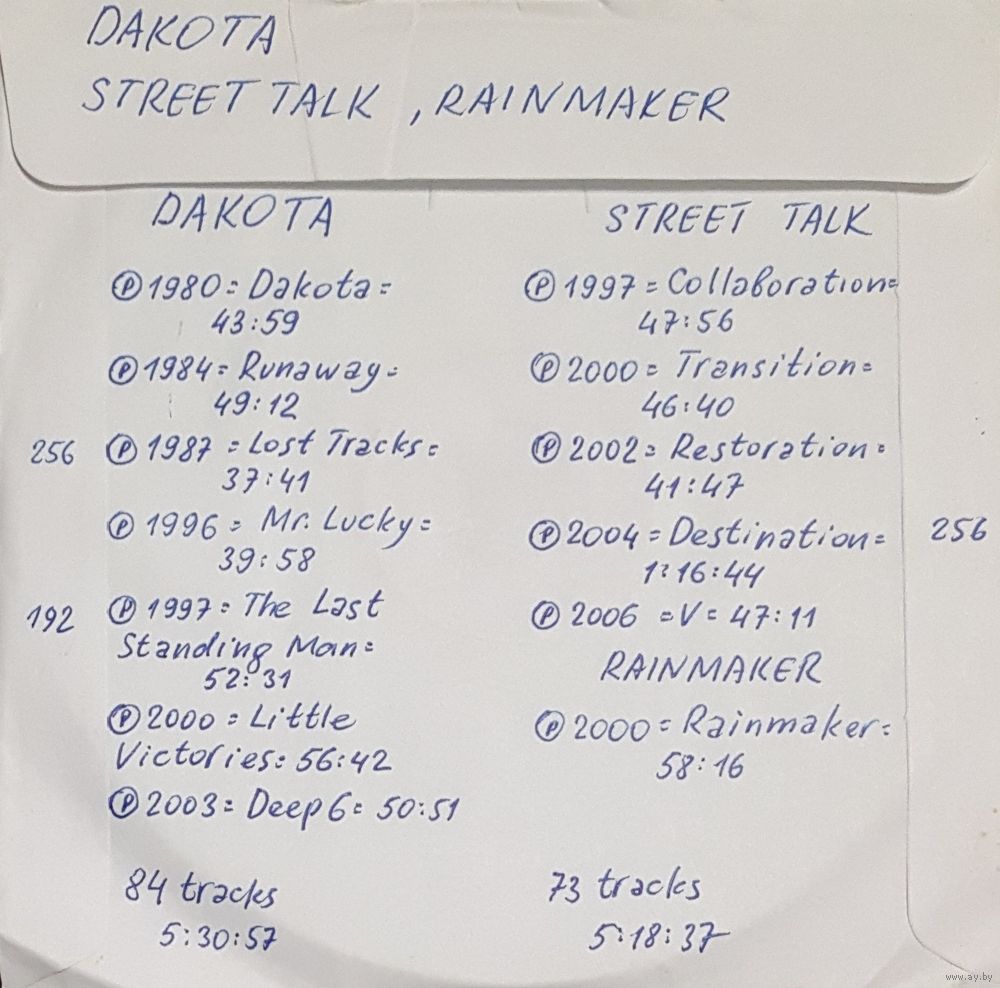 DAKOTA
STREET TALK, RAINMAKER
DAKOTA
Ⓟ 1980 = Dakota =
43:59
Ⓟ 1984 = Runaway =
49:12
256 Ⓟ 1987 = Lost Tracks =
37:41
Ⓟ 1996 = Mr. Lucky =
39:58
192 Ⓟ 1997 = The Last
Standing Man =
52:31
Ⓟ 2000 = Little
Victories = 56:42
Ⓟ 2003 = Deep 6 = 50:51
84 tracks
5:30:57
STREET TALK
Ⓟ 1997 = Collaboration =
47:56
Ⓟ 2000 = Transition =
46:40
Ⓟ 2002 = Restoration =
41:47
Ⓟ 2004 = Destination = 256
1:16:44
Ⓟ 2006 = V = 47:11
RAINMAKER
Ⓟ 2000 = Rainmaker =
58:16
73 tracks
5:18:37
www.ay.by